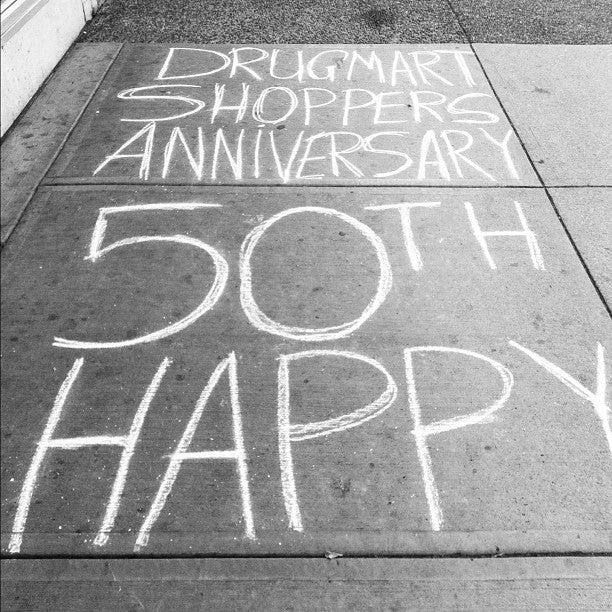 DRUGMART
SHOPPERS
ANNIVERSARY
50TH
HAPPY